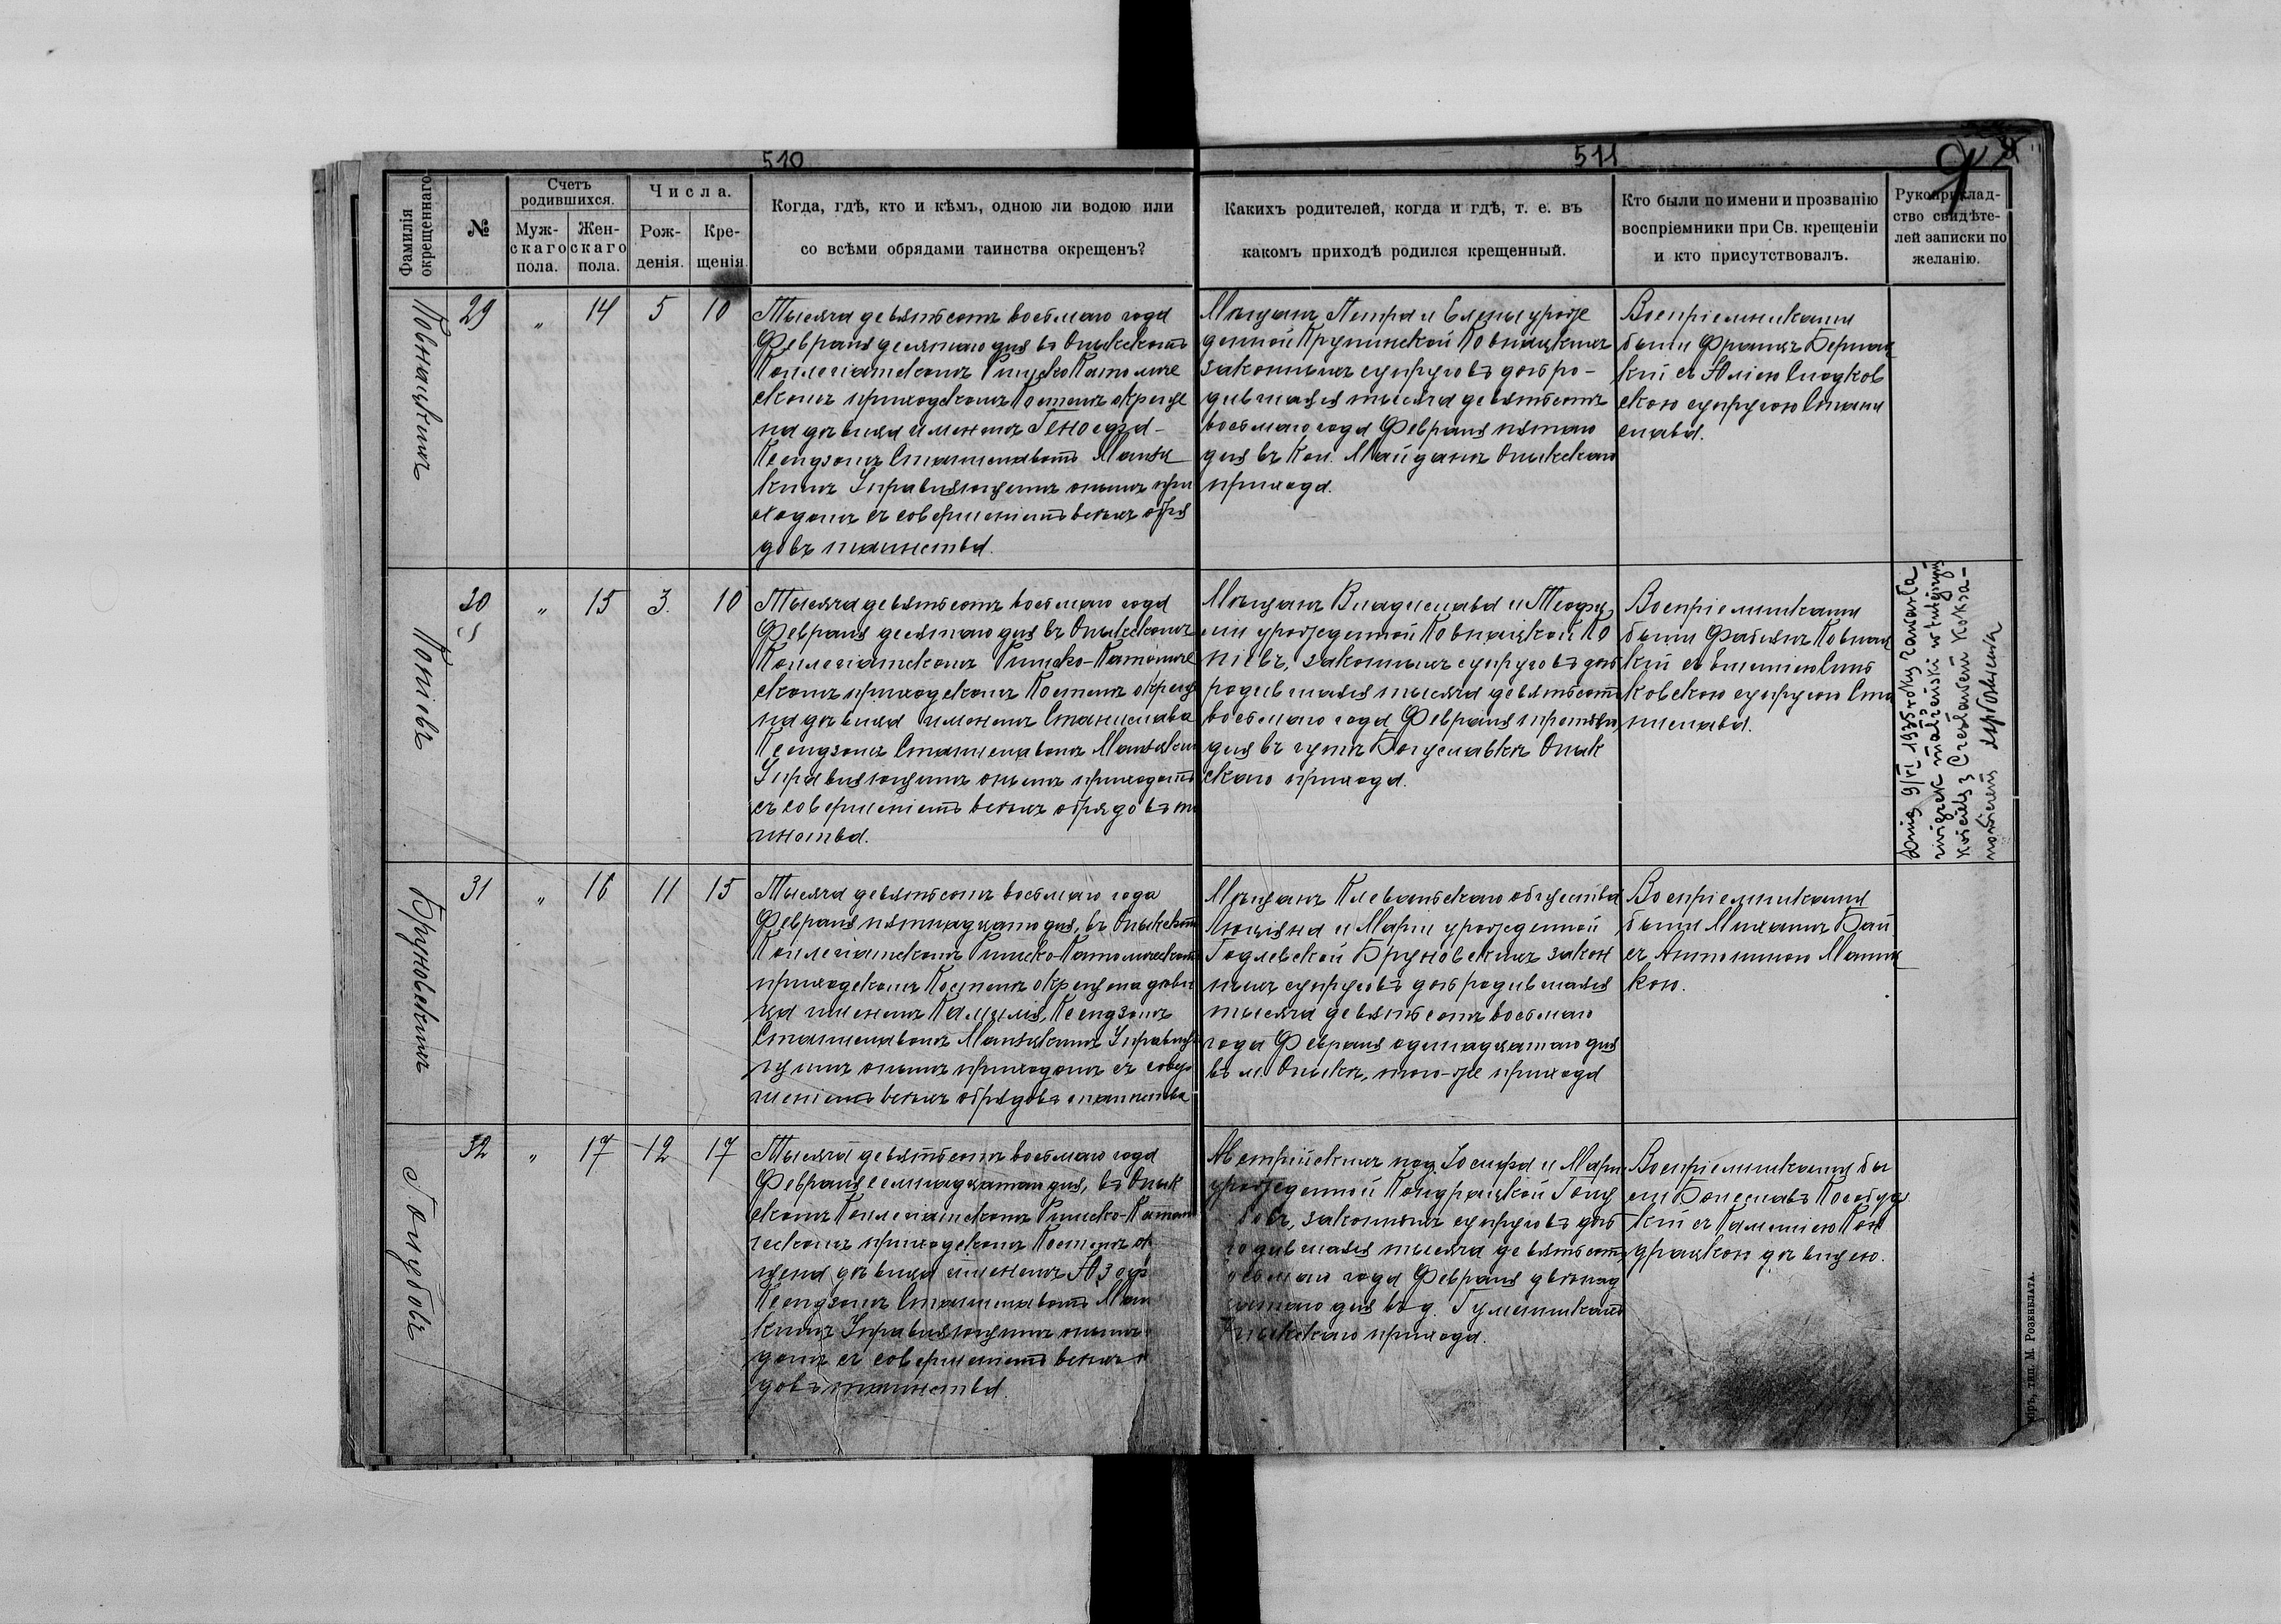 510
511
9
Фамилія окрещеннаго
№
Счетъ родившихся.
Муж-скаго пола.
Жен-скаго пола.
Числа.
Рож-денія.
Кре-щенія.
Когда, гдѣ, кто и кѣмъ, одною ли водою или
со всѣми обрядами таинства окрещенъ?
Какихъ родителей, когда и гдѣ, т. е. въ
какомъ приходѣ родился крещенный.
Кто были по имени и прозванію
воспріемники при Св. крещеніи
и кто присутствовалъ.
Рукоприклад-
ство свидѣте-
лей записки по
желанію.
Ковнацкихъ
29
"
14
5
10
Тысяча девятьсотъ восьмаго года
Февраля десятаго дня въ Олыкскомъ
Коллегіатскомъ Римско Католиче
скомъ приходскомъ Костелѣ окреще
на дѣвица именемъ
Ксендзомъ Станиславомъ
Управляющимъ онымъ при
ходомъ съ совершеніемъ всѣхъ обря
довъ таинства.
Мѣщанъ Петра и Елены урож
денной Крупинской Ковнацкихъ
законныхъ супруговъ дочь ро-
дившаяся тысяча девятьсотъ
восьмаго года Февраля пятаго
дня въ Кол. Майданѣ Олыкскаго
прихода.
Воспріемниками
были Францъ Бернац
кій съ Юліею Сладков
скою супругою Стани
слава.
Копіевъ
30
"
15
3.
10
Тысяча девятьсотъ восьмаго года
Февраля десятаго дня въ Олыкскомъ
Коллегіатскомъ Римско-Католиче
скомъ приходскомъ Костелѣ окреще
на дѣвица именемъ Станислава
Ксендзомъ Станиславомъ
Управляющимъ онымъ приходомъ
съ совершеніемъ всѣхъ обрядовъ та
инства.
Мѣщанъ Владислава и Теофи
лии урожденной Ковнацкой Ко
піевъ, законныхъ супруговъ дочь
родившаяся тысяча девятьсотъ
восьмаго года Февраля третьяго
дня въ хут. Богуславкѣ Олык
скаго прихода.
Воспріемниками
были Фабіянъ Ковнац
кій съ
ковскою супругою Ста
нислава.
Dnia 9/VI 1935 roku zawarła
związek małżeński w tutejszym
kościele z Czesławem
Бруновскихъ
31
"
16
11
15
Тысяча девятьсотъ восьмаго года
Февраля пятнадцатаго дня, въ Олыкскомъ
Коллегіатскомъ Римско-Католическомъ
приходскомъ Костелѣ окрещена дѣви
ца именемъ Камилія, Ксендзомъ
Станиславомъ Управля
ющимъ онымъ приходомъ съ совер
шеніемъ всѣхъ обрядовъ таинства
Мѣщанъ Клеваньскаго общества
Люціяна и Маріи урожденной
Годлевской Бруновскихъ закон
ныхъ супруговъ дочь родившаяся
тысяча девятьсотъ восьмаго
года Февраля одинадцатаго дня
въ м. Олыкѣ, того-же прихода
Воспріемниками
были Михаилъ Бай
съ Антониною
кою.
Голубовъ
32
"
17
12
17
Тысяча девятьсотъ восьмаго года
Февраля семнадцатаго дня, въ Олык
скомъ Коллегіатскомъ Римско-Католи
ческомъ приходскомъ Костелѣ ок
щена дѣвица именемъ Юзеф
Ксендзомъ Станиславомъ
кимъ Управляющимъ онымъ
домъ съ совершеніемъ всѣхъ о
довъ таинства.
Австрійскихъ под. Іосифа и Маріи
урожденной Кондрацкой Голу
бовъ, законныхъ супруговъ дочь
родившаяся тысяча девятьсотъ
восьмаго года Февраля двѣнад
цатаго дня въ д. Гуменникахъ
Олыкскаго прихода.
Воспріемниками бы
ли Болеславъ Кособуд
кій съ Камиліею Кон
драцкою дѣвицею.
тип. М. Розенблата.